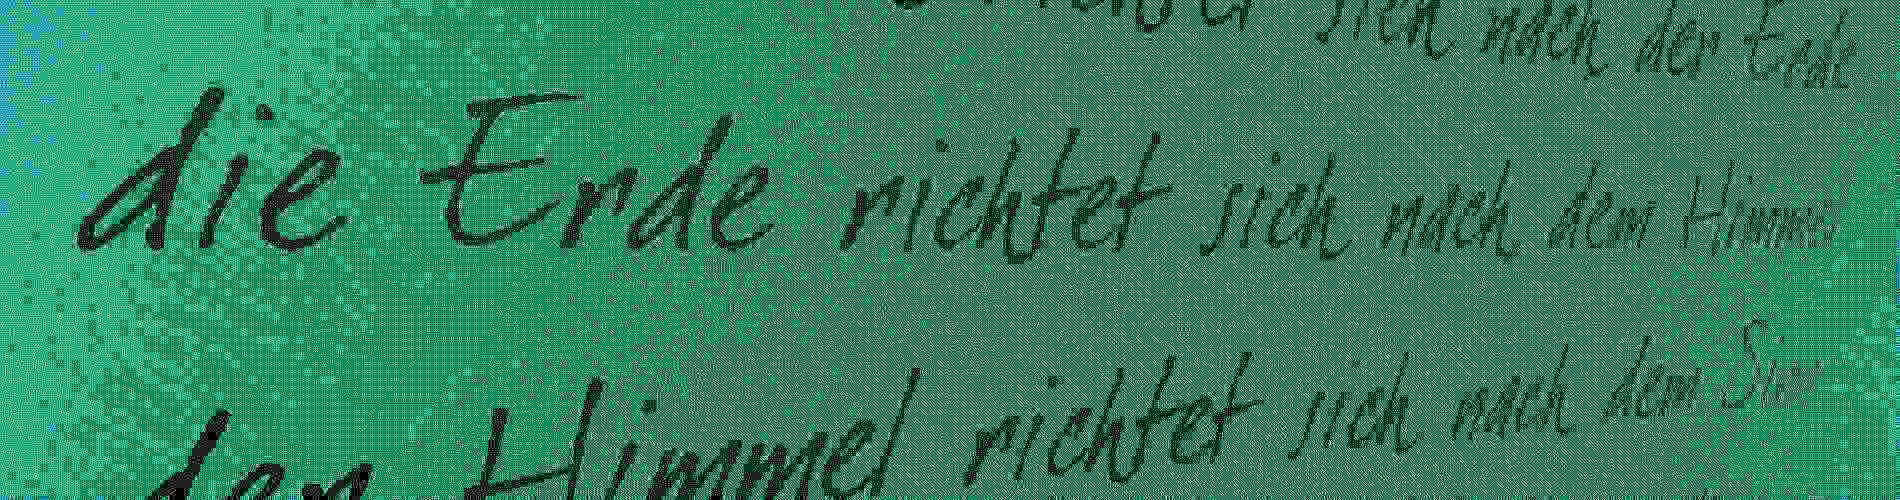 richtet sich nach der Erde
die Erde richtet sich nach dem Himmel
der Himmel richtet sich nach dem